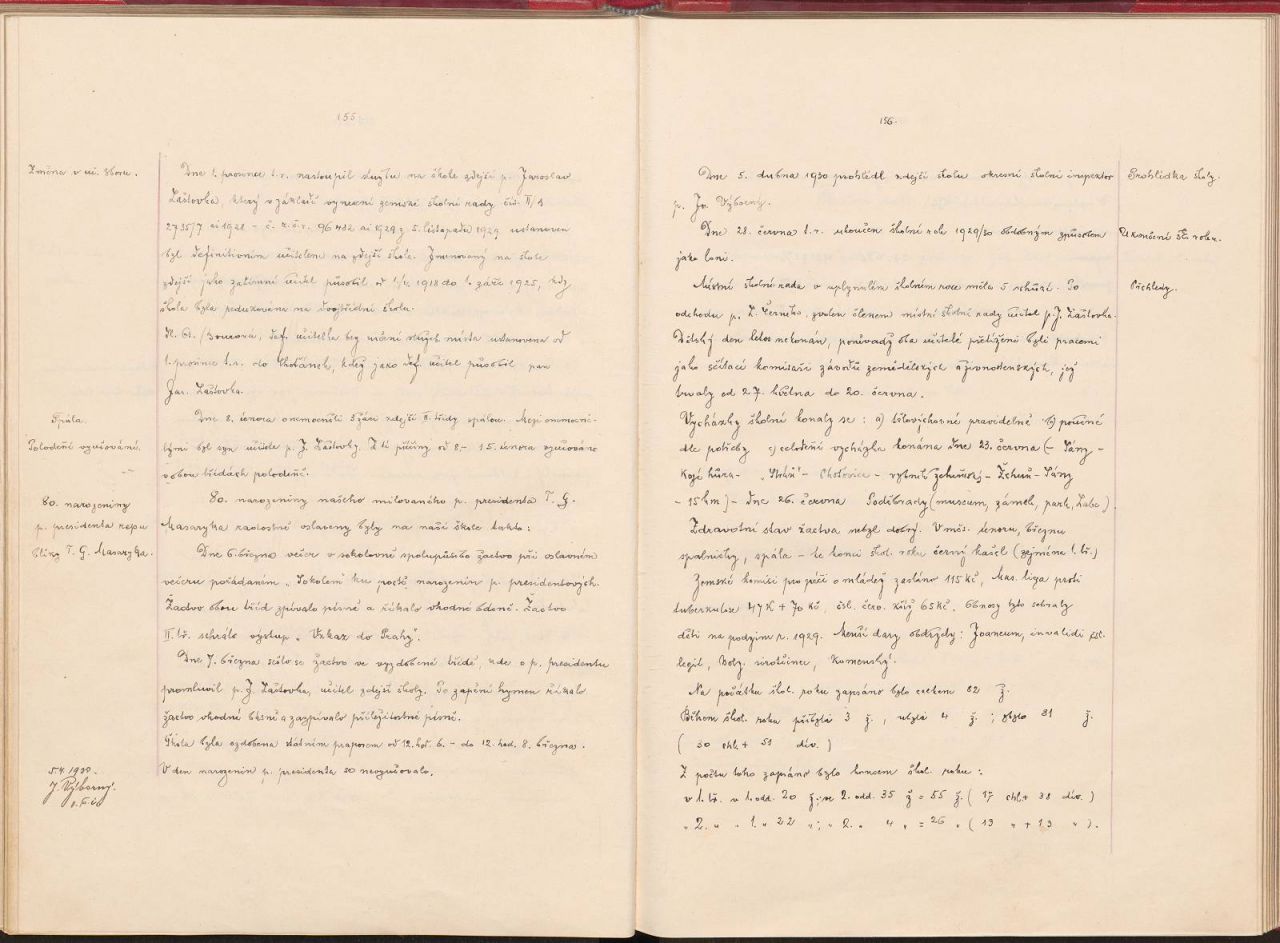 155
Změna v uč. sboru.
Dne 1. prosince t. r. nastoupil službu na škole zdejší p. Jaroslav
Laštovka, který v základě vynesení zemské školní rady čís. II/4
2735/7 ai 1928 - č. z. š. r. 96482 ai 1929 z 5. listopadu 1929 ustanoven
byl definitivním učitelem na zdejší škole. Jmenovaný na škole
zdejší jako zatímní učitel působil od 1/4. 1918 do 1. září 1925, kdy
škola byla redukována na dvojtřídní školu.
Sl. def. učitelka bez určení služ. místa ustanovena od
1. prosince t. r. do Chotánek, kdež jako def. učitel působil pan
Jar. Laštovka.
Spála.
Polodenní vyučování.
Dne 8. února onemocněli žáci zdejší II. třídy spálou. Mezi onemocně-
lými byl syn učitele p. J. Laštovky. Z té příčiny od 8.- 15. února vyučováno
v obou třídách polodenně.
80. narozeniny
p. presidenta repu
bliky T. G. Masaryka.
80. narozeniny našeho milovaného p. presidenta T. G.
Masaryka radostně oslaveny byly na naší škole takto:
Dne 6. března večer v sokolovně spolupůsobilo žactvo při oslavném
večeru pořádaném „Sokolem" ku poctě narozenin p. presidentových.
Žactvo obou tříd zpívalo písně a říkalo vhodné básně. Žactvo
II. tř. sehrálo výstup „Vzkaz do Prahy".
Dne 7. března sešlo se žactvo ve vyzdobené třídě, kde o p. presidentu
promluvil p. J. Laštovka, učitel zdejší školy. Po zapění hymen říkalo
žactvo vhodné básně a zazpívalo příležitostné písně.
Škola byla ozdobena státním praporem od 12. hod. 6. - do 12. hod. 8. března.
V den narozenin p. presidenta se nevyučovalo.
5.4. 1930.
J. Výborný.
156.
Dne 5. dubna 1930 prohlédl zdejší školu okresní školní inspektor
p. Jos. Výborný.
Prohlídka školy.
Dne 28. června t. r. ukončen školní rok 1929/30 obdobným způsobem
jako loni.
Ukončení šk. roku.
Místní školní rada v uplynulém školním roce měla 5 schůzí. Po
odchodu p. L. Černého, zvolen členem místní školní rady učitel p. J. Laštovka.
Přehledy.
Dětský den letos nekonán, poněvadž oba učitelé přetíženi byli pracemi
jako sčítací komisaři závodů zemědělských a živnostenských, jež
trvaly od 27. května do 20. června.
Vycházky školní konaly se: a) tělovýchovné pravidelně b) poučné
dle potřeby c) celodenní vycházka konána dne 23. června (- Sány -
Kojí hůra - „Stráň" - Chotovice - rybník Žehuňský - Žehuň - Sány
- 15 km) - dne 26. června Poděbrady (museum, zámek, park, Labe).
Zdravotní stav žactva nebyl dobrý. V měs. únoru, březnu
spalničky, spála - ke konci škol. roku černý kašel (zejména 1. tř.)
Zemské komisi pro péči o mládež zasláno 115 Kč, Mas. liga proti
tuberkulose 47 K + 70 Kč, čsl. červ. kříž 65 Kč. Obnosy tyto sebraly
děti na podzim r. 1929. Menší dary obdržely: Joaneum, invalidi čsl.
legií, Bolz. sirotčinec, „Komenský".
Na počátku škol. roku zapsáno bylo celkem 82 ž.
Během škol. roku přibyli 3 ž., ubyli 4 ž.; zbylo 81 ž.
( 30 chl. + 51 dív. )
Z počtu toho zapsáno bylo koncem škol. roku:
v 1. tř. v 1. odd. 20 ž.; ve 2. odd. 35 ž = 55 ž. ( 17 chl. + 38 dív. )
„ 2. „ „ 1. „ 22 „; „ 2. „ 4 „ = 26 „ ( 13 „ + 13 „ ).